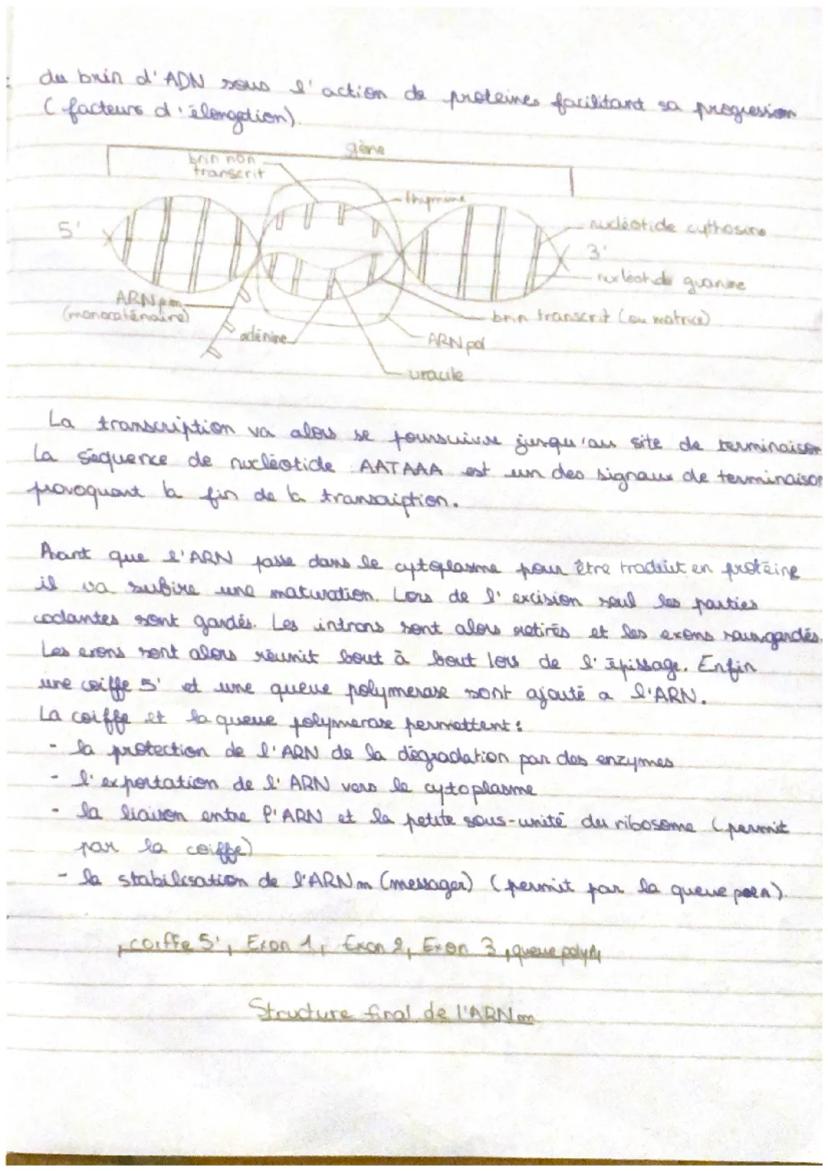 du brin d'ADN sous l'action de proteines facilitant sa progression
( facteurs d'élongation).
gène
brin non
transcrit
thymine
5'
nucléotide cythosine
3'
nucléotide guanine
ARNpm
(monocaténaire)
brin transcrit (ou matrice)
adénine
ARN pol
uracile
La transcription va alors se poursuivre jusqu'au site de terminaison
La séquence de nucléotide AATAAA est un des signaux de terminaison
provoquant la fin de la transcription.
Avant que l'ARN passe dans le cytoplasme pour être traduit en protéine
il va subire une maturation. Lors de l'excision seul les parties
codantes sont gardés. Les introns sont alors retirés et les exons sauvgardés.
Les exons sont alors réunit bout à bout lors de l'épissage. Enfin
une coiffe 5' et une queue polymerase sont ajouté a l'ARN.
La coiffe et la queue polymerase permettent :
- la protection de l'ARN de la dégradation par des enzymes
- l'exportation de l'ARN vers le cytoplasme
- la liaison entre l'ARN et la petite sous-unité du ribosome (permit
par la coiffe)
- la stabilisation de l'ARNm (messager) (permit par la queue
coiffe 5', Exon 1, Exon 2, Exon 3, queue polyA
Structure final de l'ARNm